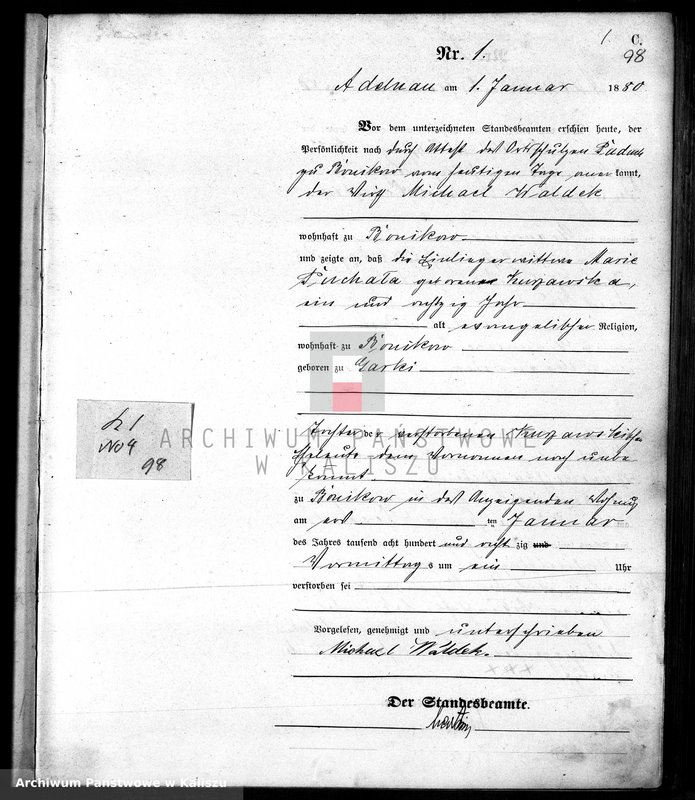 1. C.
98
Nr. 1.
Adelnau am 1. Januar 1880
Vor dem unterzeichneten Standesbeamten erschien heute, der
Persönlichkeit nach durch Attest des Ortsschulzen
zu Bonikow vom heutigen Tage aner kannt,
der Wirth Michael Waldek
wohnhaft zu Bonikow
und zeigte an, daß die Einliegerwittwe Marie
Puchala geborene Kurzawska,
ein und achtzig Jahr
alt evangelischer Religion,
wohnhaft zu Bonikow
geboren zu Garki
Tochter der verstorbenen Kurzawskischen
Eheleute dem Vornamen nach unbe
kannt
zu Bonikow in des Anzeigenden Wohnung
am ersten Januar
des Jahres tausend acht hundert und acht zig und
Vormittags um ein Uhr
verstorben sei
Vorgelesen, genehmigt und unterschrieben
Michael Waldek.
Der Standesbeamte.
1
No 4
98
ARCHIWUM PAŃSTWOWE
W KALISZU
Archiwum Państwowe w Kaliszu